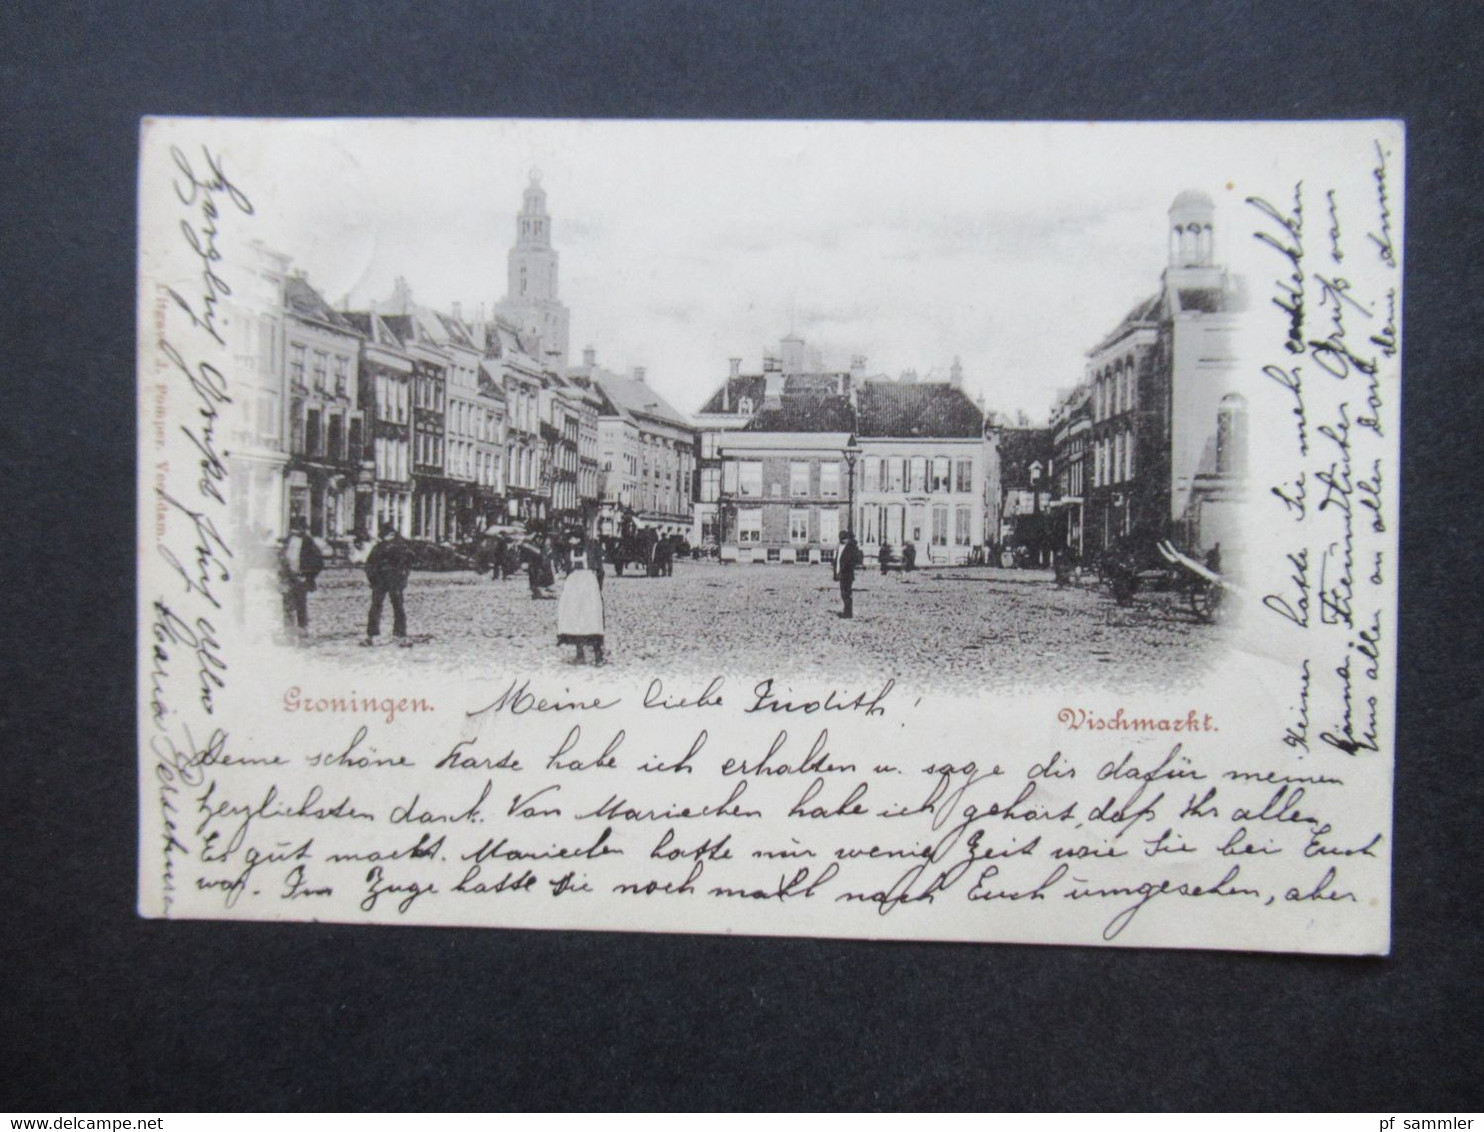 Groningen.
Vischmarkt.
Uitgave J. Pomper, Veendam.
Meine liebe Judith!
Deine schöne Karte habe ich erhalten u. sage dir dafür meinen
herzlichsten dank. Von Mariechen habe ich gehört, daß Ihr allen
Es gut macht. Mariechen hatte nur wenig Zeit wie Sie bei Euch
war. Im Zuge hatte Sie noch mal nach Euch umgesehen, aber
Keinen hatte Sie mehr entdekken
können. Freundlicher Gruß von
uns allen an allen dort dein Anna.
Herzlig Grüßt Euch Allen
Maria
delcampe.net
pf_sammler